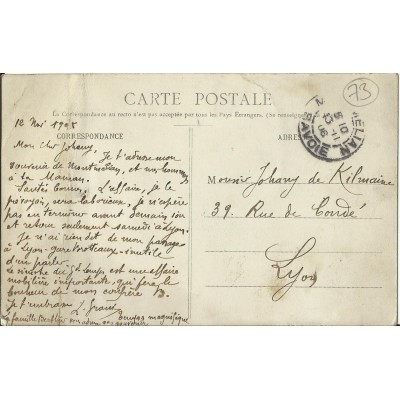 73
CARTE POSTALE
La Correspondance au recto n'est pas acceptée par tous les Pays Étrangers. (Se renseigner
12 1905
CORRESPONDANCE
ADRES
MÉLIAN
SAVOIE
Mon cher Johany,
Je t'adresse mon
souvenir de Montmélian, et
à ta Maman.
Santés bonnes. L'affaire, je le
prévoyais, sera laborieuse, je n'espère
pas en terminer avant demain soir
et retour seulement samedi à Lyon.
Je n'ai rien dit de mon passage
à Lyon-gare Brotteaux - inutile
d'en parler.
Le sinistre du St Loup est une affaire
mobilière importante, qui fera le
bonheur de mon confrère B.
Je t'embrasse
La famille
souvenir
Temps magnifique
Monsieur Johany de Kilmaine
39, Rue de Condé
Lyon